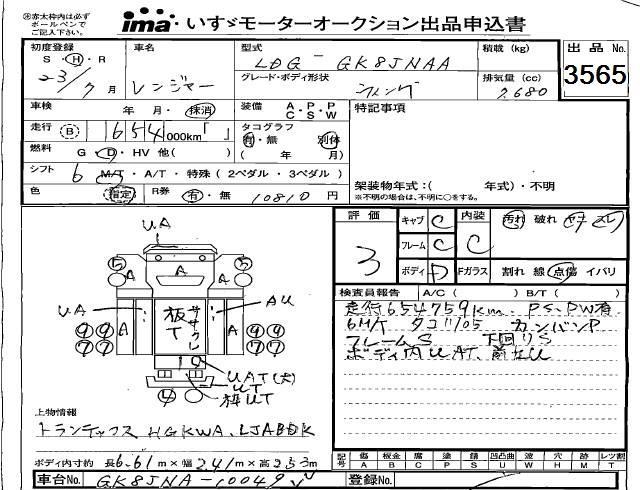 ※赤太枠内は必ず
ボールペンで
ご記入下さい。
ima いすゞモーターオークション出品申込書
初度登録 車名 型式 積載 (kg) 出品 No.
S・H・R 23/7月 レンジャー LDG-GK8JNAA 3565
グレード・ボディ形状 ウィング 排気量 (cc) 7,680
車検 年 月・抹消 装備 A・P・P C・S・W 特記事項
走行 B 654,000km「 」 タコグラフ 有・無 別体
燃料 G・D・HV 他( ) ( 年 月)
シフト 6 M/T・A/T・特殊 (2ペダル・3ペダル)
架装物年式:( 年式)・不明
色 指定 R券 有・無 10810 円
※不明の場合は、不明に○をする。
評価 3 キャブ C 内装 C 汚れ 破れ ヤケ スレ
フレーム C
ボディ D Fガラス 割れ 線 点傷 イバリ
検査員報告 A/C ( ) B/T ( )
走行654759km. PS.PW有
6M/T タコ11705 カンバンP
フレームS 下回りS
ボディ内UAT.
UA
5 A 5
A A
UA AU
9 9 A A 9 9
7 7 7 7
板T ササクレ
UAT(大)
UT
枠UT
4
上物情報
トランテックス HGKWA.LJABDK
ボディ内寸約 長6.61m×幅2.41m×高2.53m
記号 傷 A 板金 B 腐 C 塗 P サビ S 凹凸曲 U 波 W 穴 H 跡 M レツ割 T
車台No. GK8JNA-10049 登録No.